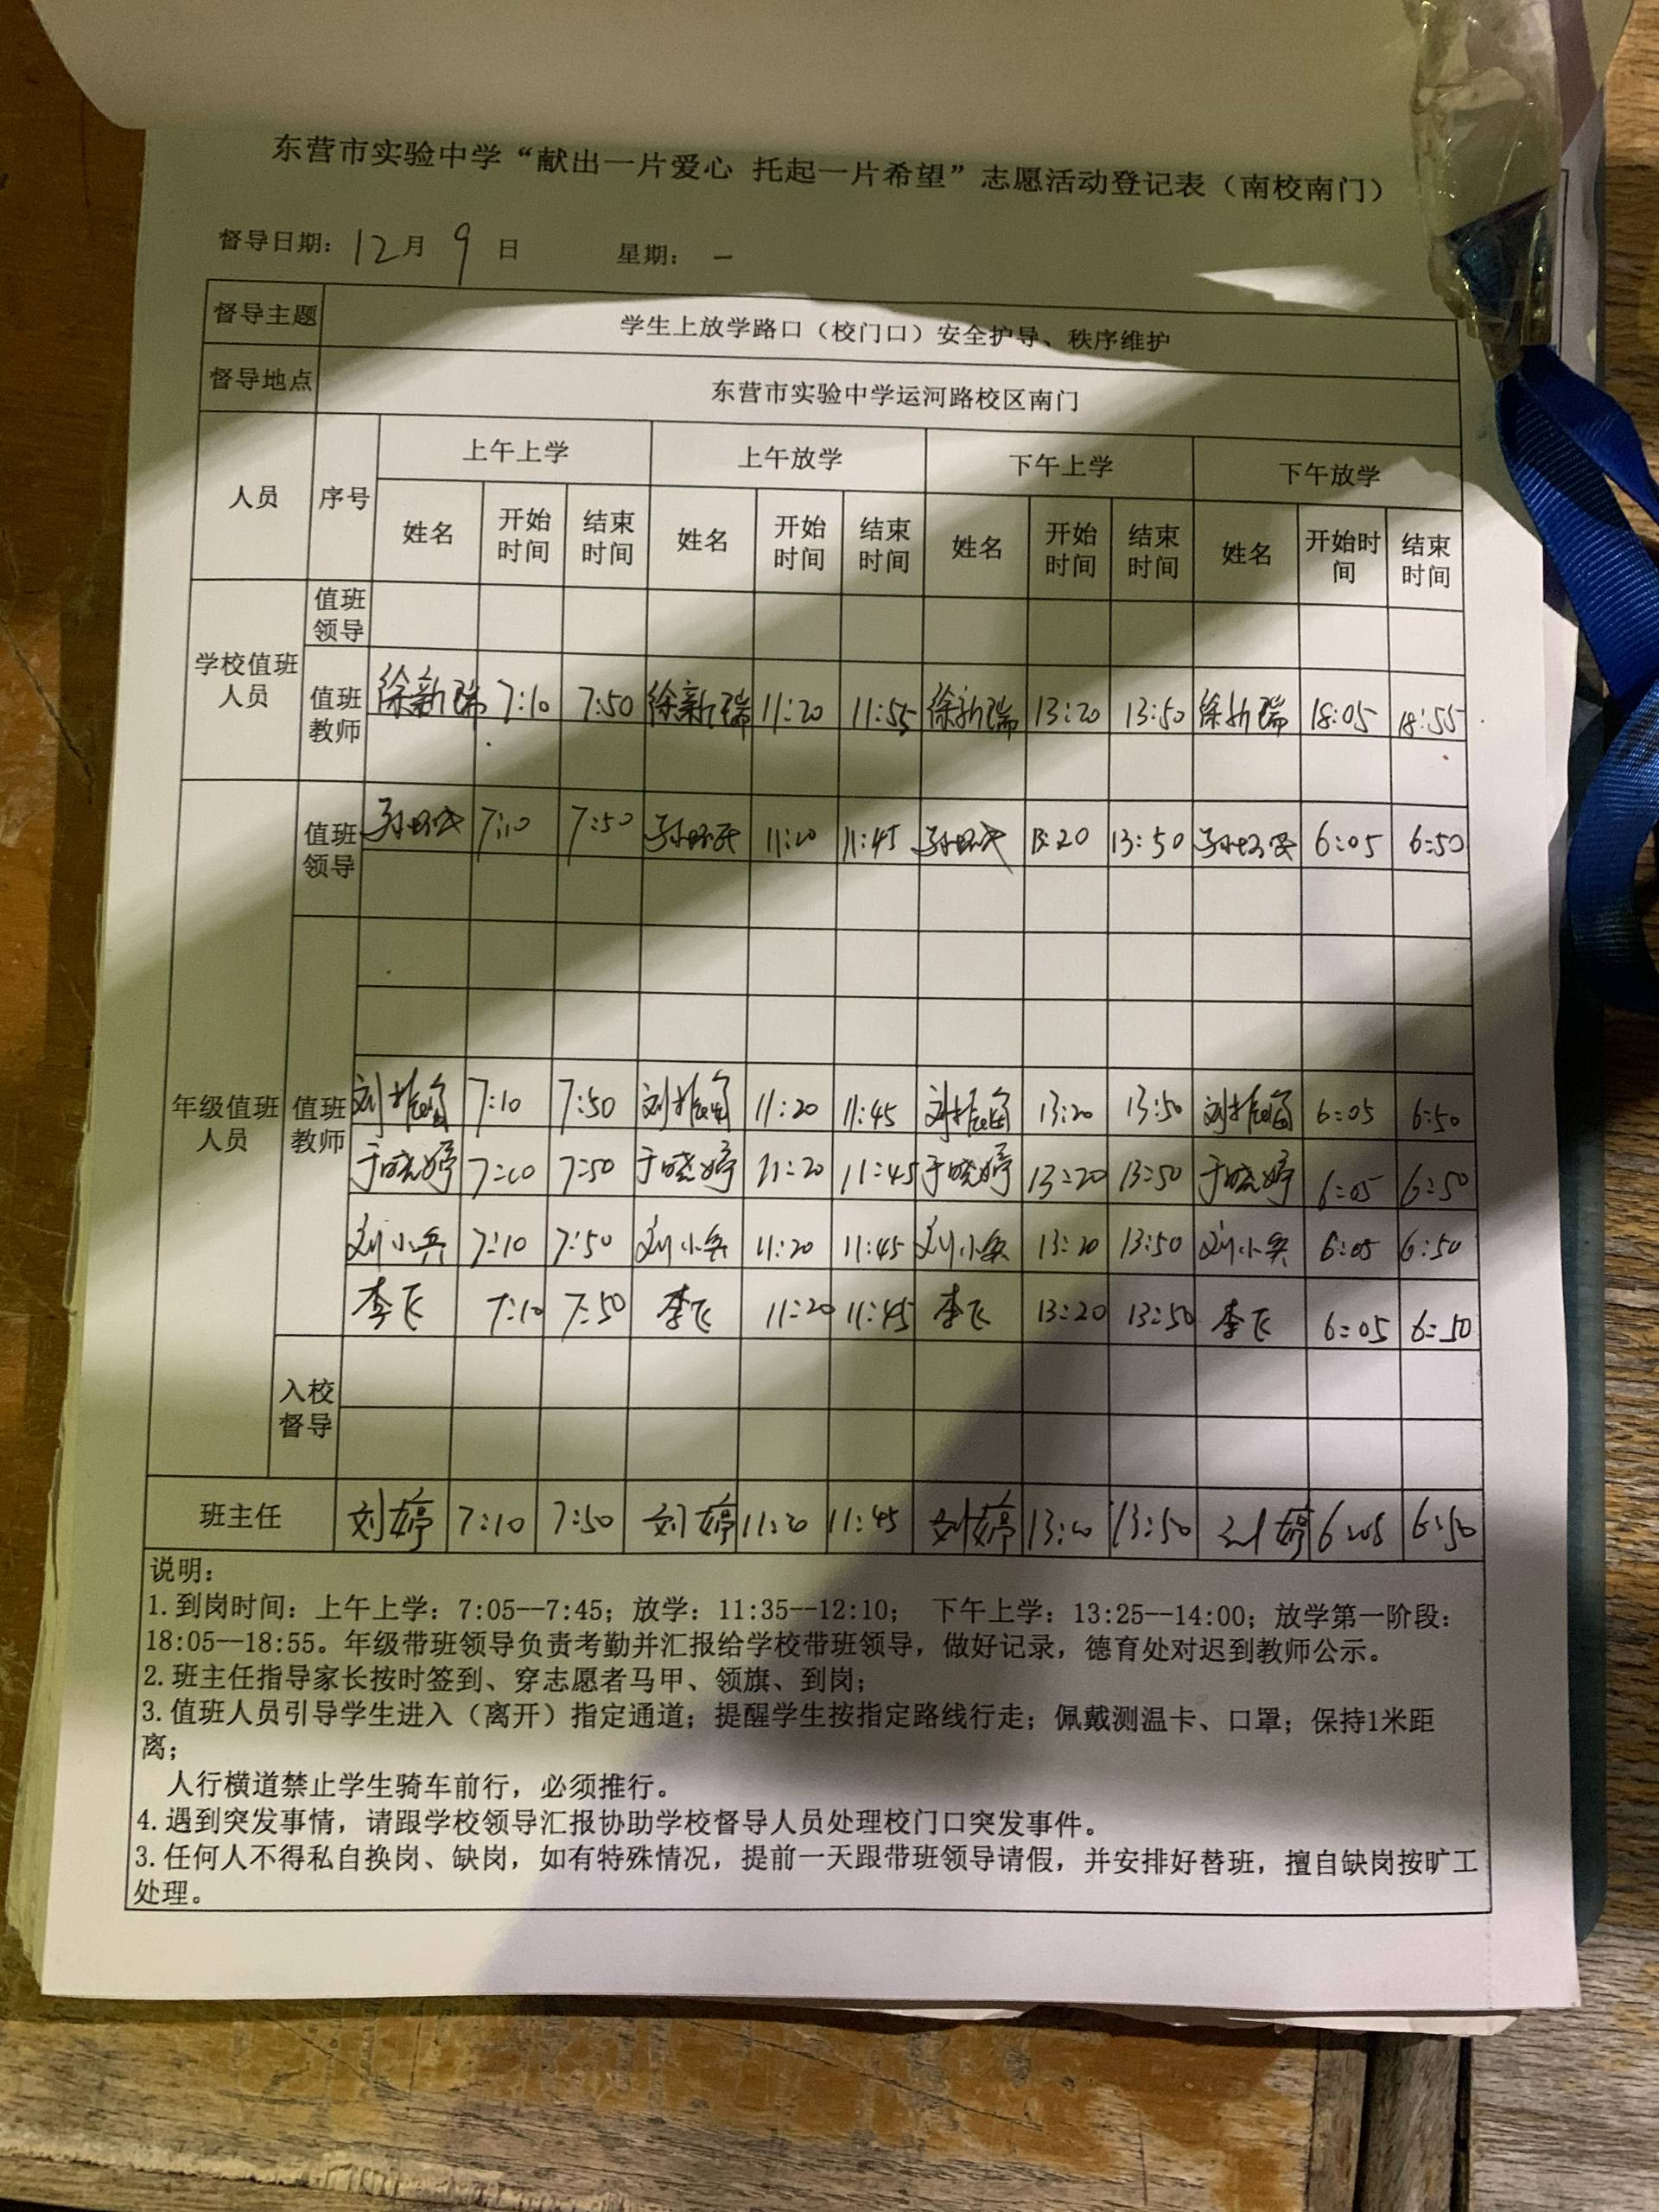 东营市实验中学“献出一片爱心 托起一片希望”志愿活动登记表（南校南门）
督导日期：12月 9 日 星期：一
督导主题 学生上放学路口（校门口）安全护导、秩序维护
督导地点 东营市实验中学运河路校区南门
人员 序号 上午上学 上午放学 下午上学 下午放学
姓名 开始时间 结束时间 姓名 开始时间 结束时间 姓名 开始时间 结束时间 姓名 开始时间 结束时间
学校值班人员 值班领导
值班教师 徐新瑞 7:10 7:50 徐新瑞 11:20 11:55 徐新瑞 13:20 13:50 徐新瑞 18:05 18:55
年级值班人员 值班领导 7:10 7:50 11:20 11:45 13:20 13:50 6:05 6:50
值班教师 刘 7:10 7:50 刘 11:20 11:45 刘 13:20 13:50 刘 6:05 6:50
于晓婷 7:10 7:50 于晓婷 11:20 11:45 于晓婷 13:20 13:50 于晓婷 6:05 6:50
刘小兵 7:10 7:50 刘小兵 11:20 11:45 刘小兵 13:20 13:50 刘小兵 6:05 6:50
李飞 7:10 7:50 李飞 11:20 11:45 李飞 13:20 13:50 李飞 6:05 6:50
入校督导
班主任 刘婷 7:10 7:50 刘婷 11:20 11:45 刘婷 13:20 13:50 刘婷 6:05 6:50
说明：
1.到岗时间：上午上学：7:05--7:45；放学：11:35--12:10； 下午上学：13:25--14:00；放学第一阶段：
18:05--18:55。年级带班领导负责考勤并汇报给学校带班领导，做好记录，德育处对迟到教师公示。
2.班主任指导家长按时签到、穿志愿者马甲、领旗、到岗；
3.值班人员引导学生进入（离开）指定通道；提醒学生按指定路线行走；佩戴测温卡、口罩；保持1米距
离；
人行横道禁止学生骑车前行，必须推行。
4.遇到突发事情，请跟学校领导汇报协助学校督导人员处理校门口突发事件。
3.任何人不得私自换岗、缺岗，如有特殊情况，提前一天跟带班领导请假，并安排好替班，擅自缺岗按旷工
处理。